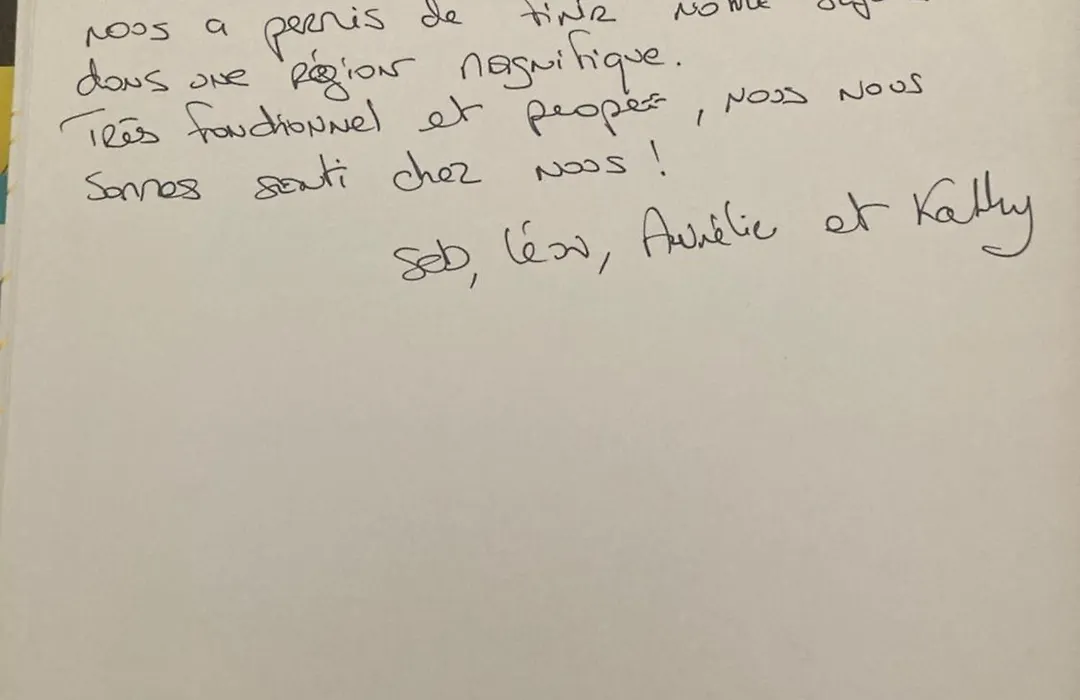 nous a permis de finir notre séj
dans une région magnifique.
Très fonctionnel et propre, nous nous
sommes senti chez nous !
Seb, Léo, Aurélie et Kathy